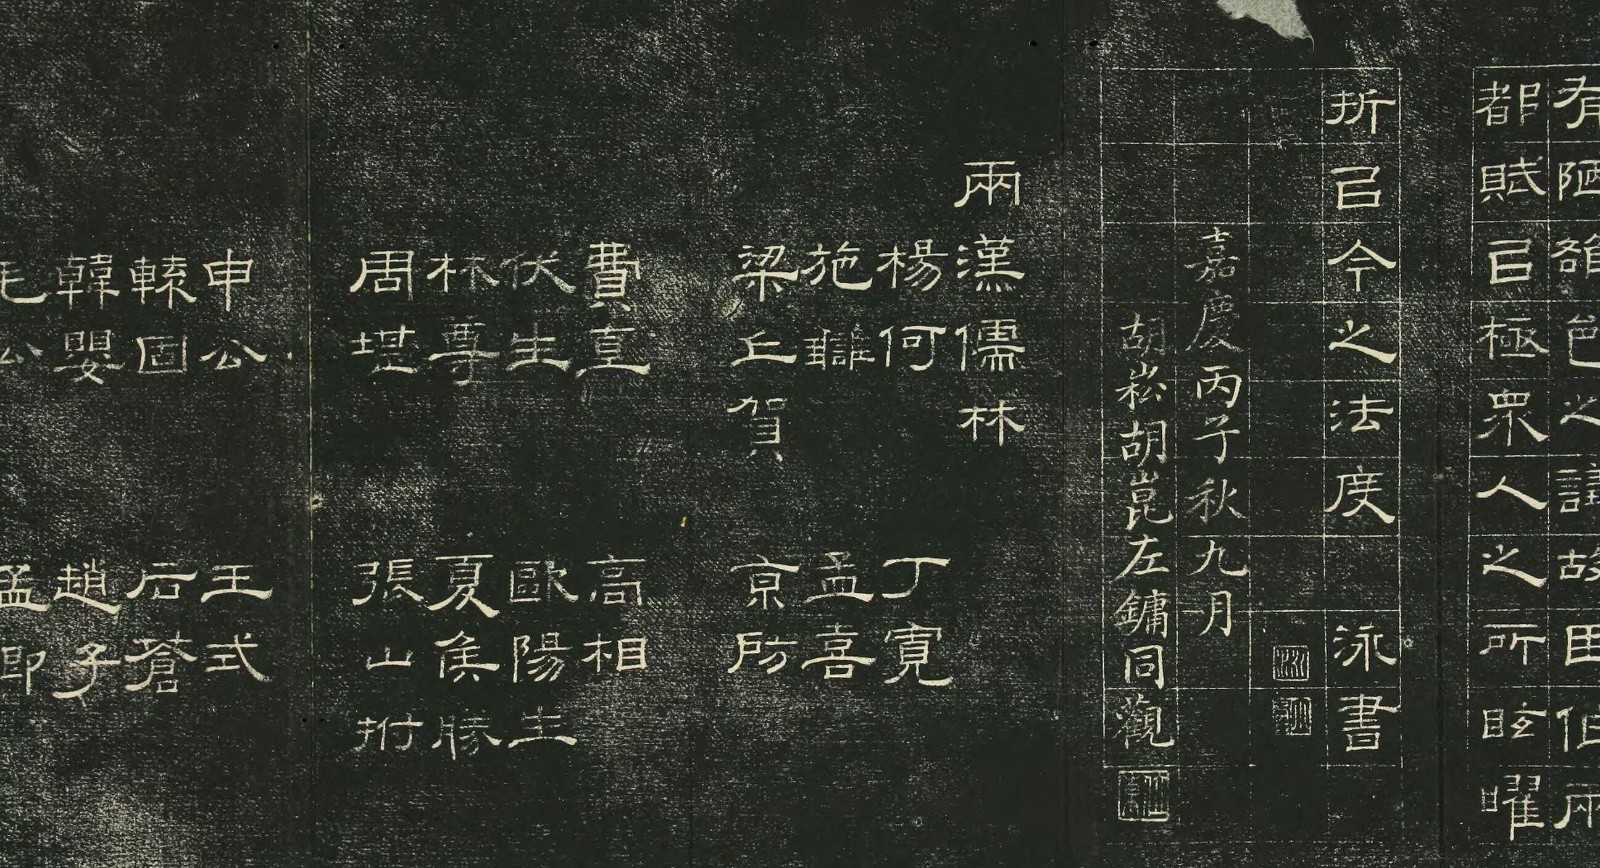 有陋雒邑之議故臣作兩
都賦㠯極眾人之所眩曜
折㠯今之法度 泳書
嘉慶丙子秋九月
胡崧胡崑左鏞同觀
兩漢儒林
楊何 丁寬
施讎 孟喜
梁丘賀 京房
費直 高相
伏生 歐陽生
林尊 夏侯勝
周堪 張山拊
申公 王式
轅固 后蒼
韓嬰 趙子
毛公 孟卿